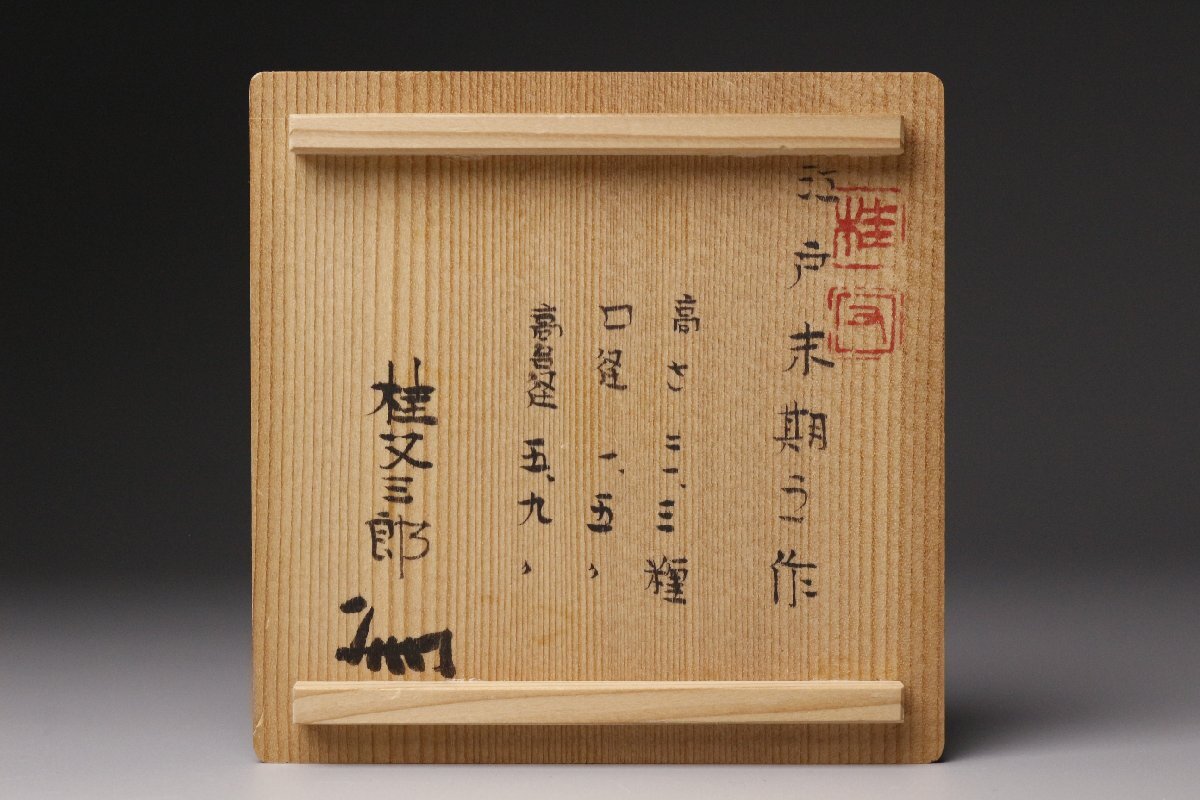 江戸末期之作
高さ 二一、三糎
口径 一、五〃
高台径 五、九〃
桂又三郎
桂
又